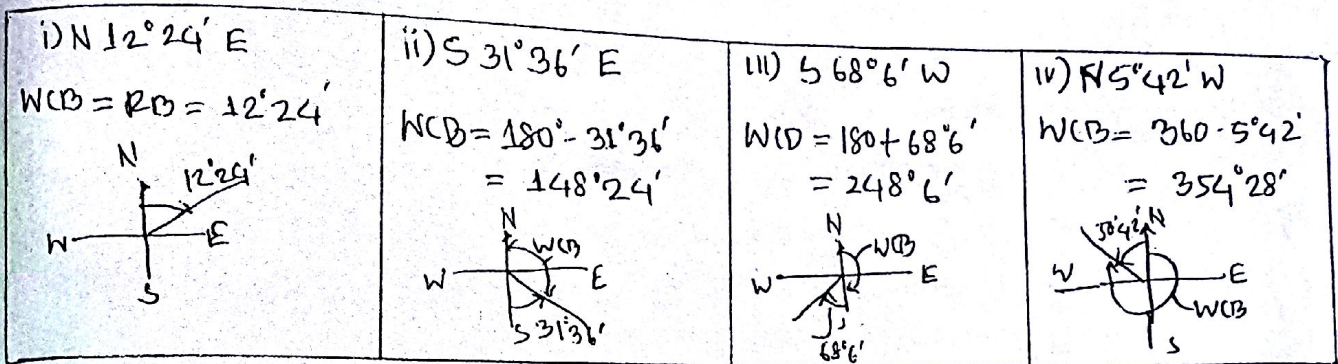 i) N 12°24' E
WCB = RB = 12°24'
N
12°24'
W
E
S
ii) S 31°36' E
WCB = 180° - 31°36'
= 148°24'
N
WCB
W
E
S 31°36'
iii) S 68°6' W
WCB = 180 + 68°6'
= 248°6'
N
WCB
W
E
S
68°6'
iv) N 5°42' W
WCB = 360 - 5°42'
= 354°28'
N
W
E
WCB
S